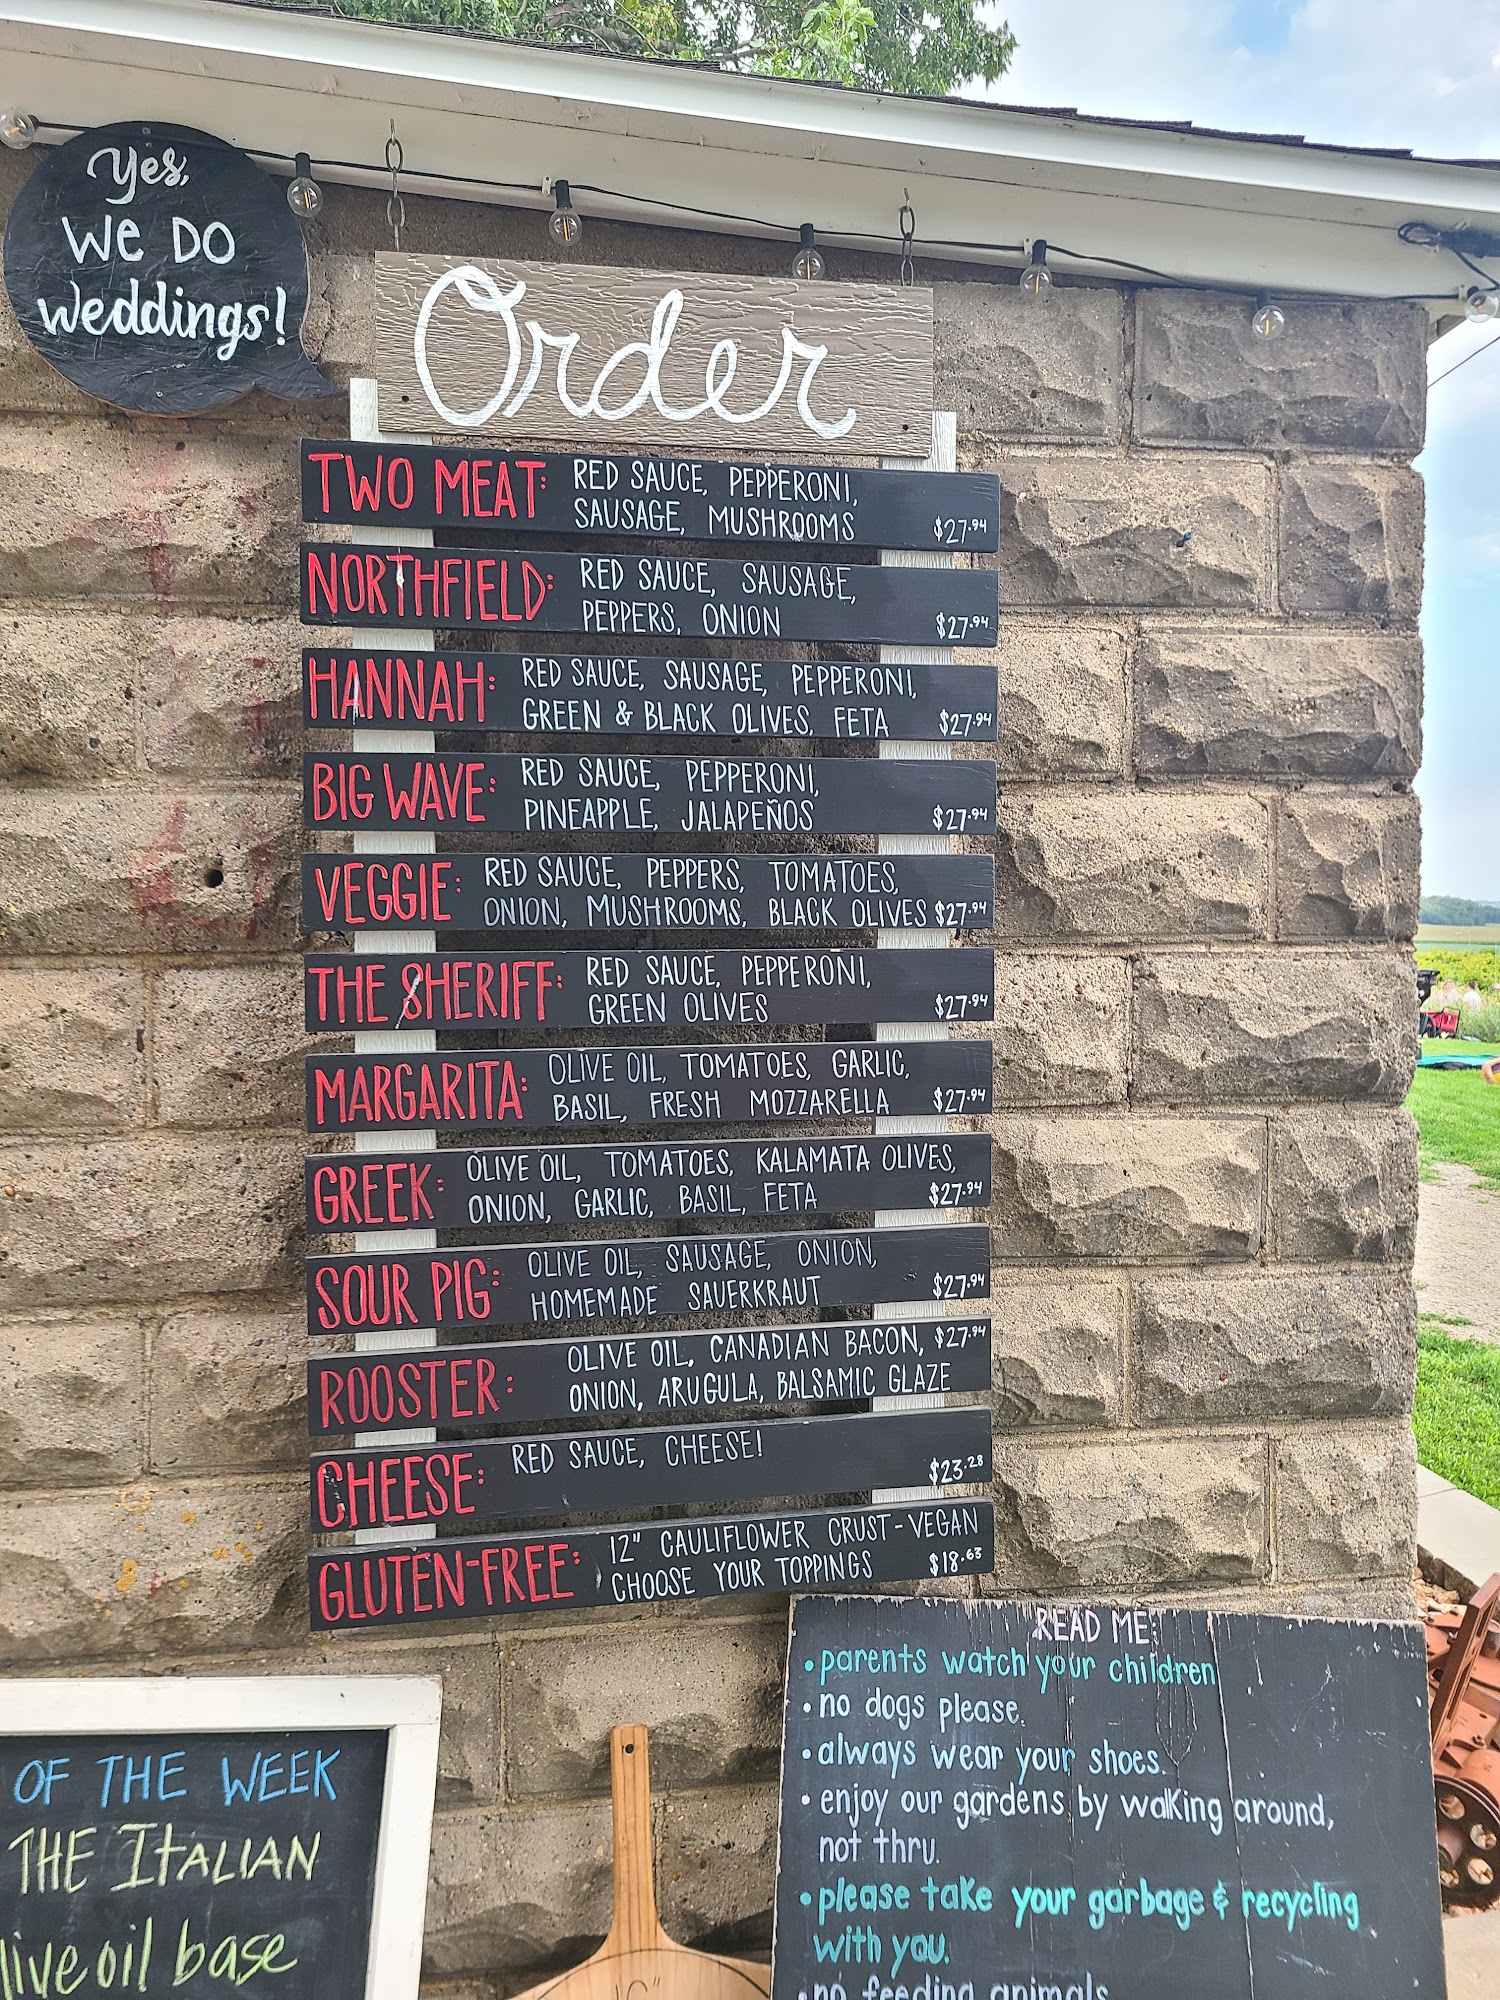 Yes,
We DO
Weddings!
Order
TWO MEAT: RED SAUCE, PEPPERONI,
SAUSAGE, MUSHROOMS $27.94
NORTHFIELD: RED SAUCE, SAUSAGE,
PEPPERS, ONION $27.94
HANNAH: RED SAUCE, SAUSAGE, PEPPERONI,
GREEN & BLACK OLIVES, FETA $27.94
BIG WAVE: RED SAUCE, PEPPERONI,
PINEAPPLE, JALAPEÑOS $27.94
VEGGIE: RED SAUCE, PEPPERS, TOMATOES,
ONION, MUSHROOMS, BLACK OLIVES $27.94
THE SHERIFF: RED SAUCE, PEPPERONI,
GREEN OLIVES $27.94
MARGARITA: OLIVE OIL, TOMATOES, GARLIC,
BASIL, FRESH MOZZARELLA $27.94
GREEK: OLIVE OIL, TOMATOES, KALAMATA OLIVES,
ONION, GARLIC, BASIL, FETA $27.94
SOUR PIG: OLIVE OIL, SAUSAGE, ONION,
HOMEMADE SAUERKRAUT $27.94
ROOSTER: OLIVE OIL, CANADIAN BACON, $27.94
ONION, ARUGULA, BALSAMIC GLAZE
CHEESE: RED SAUCE, CHEESE!
$23.28
GLUTEN-FREE: 12" CAULIFLOWER CRUST-VEGAN
CHOOSE YOUR TOPPINGS $18.63
OF THE WEEK
THE ITALIAN
live oil base
16"
READ ME:
• parents watch your children
• no dogs please.
• always wear your shoes.
• enjoy our gardens by walking around,
not thru.
• please take your garbage & recycling
with you.
• no feeding animals